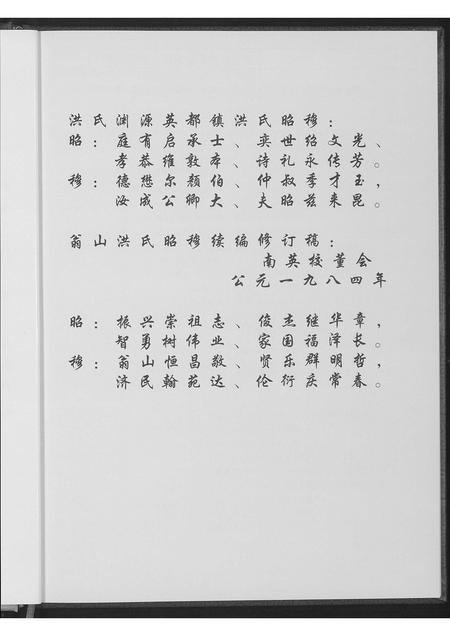 洪氏渊源英都镇洪氏昭穆：
昭：庭有启承士、奕世绍文光、
孝恭维敦本、诗礼永传芳。
穆：德懋尔颜伯、仲叔季才玉，
汝成公卿大、夫昭兹来昆。
翁山洪氏昭穆续编修订稿：
南英校董会
公元一九八四年
昭：振兴崇祖志、俊杰继华章，
智勇树伟业、家国福泽长。
穆：翁山恒昌敬、贤乐群明哲，
济民翰苑达、伦衍庆常春。